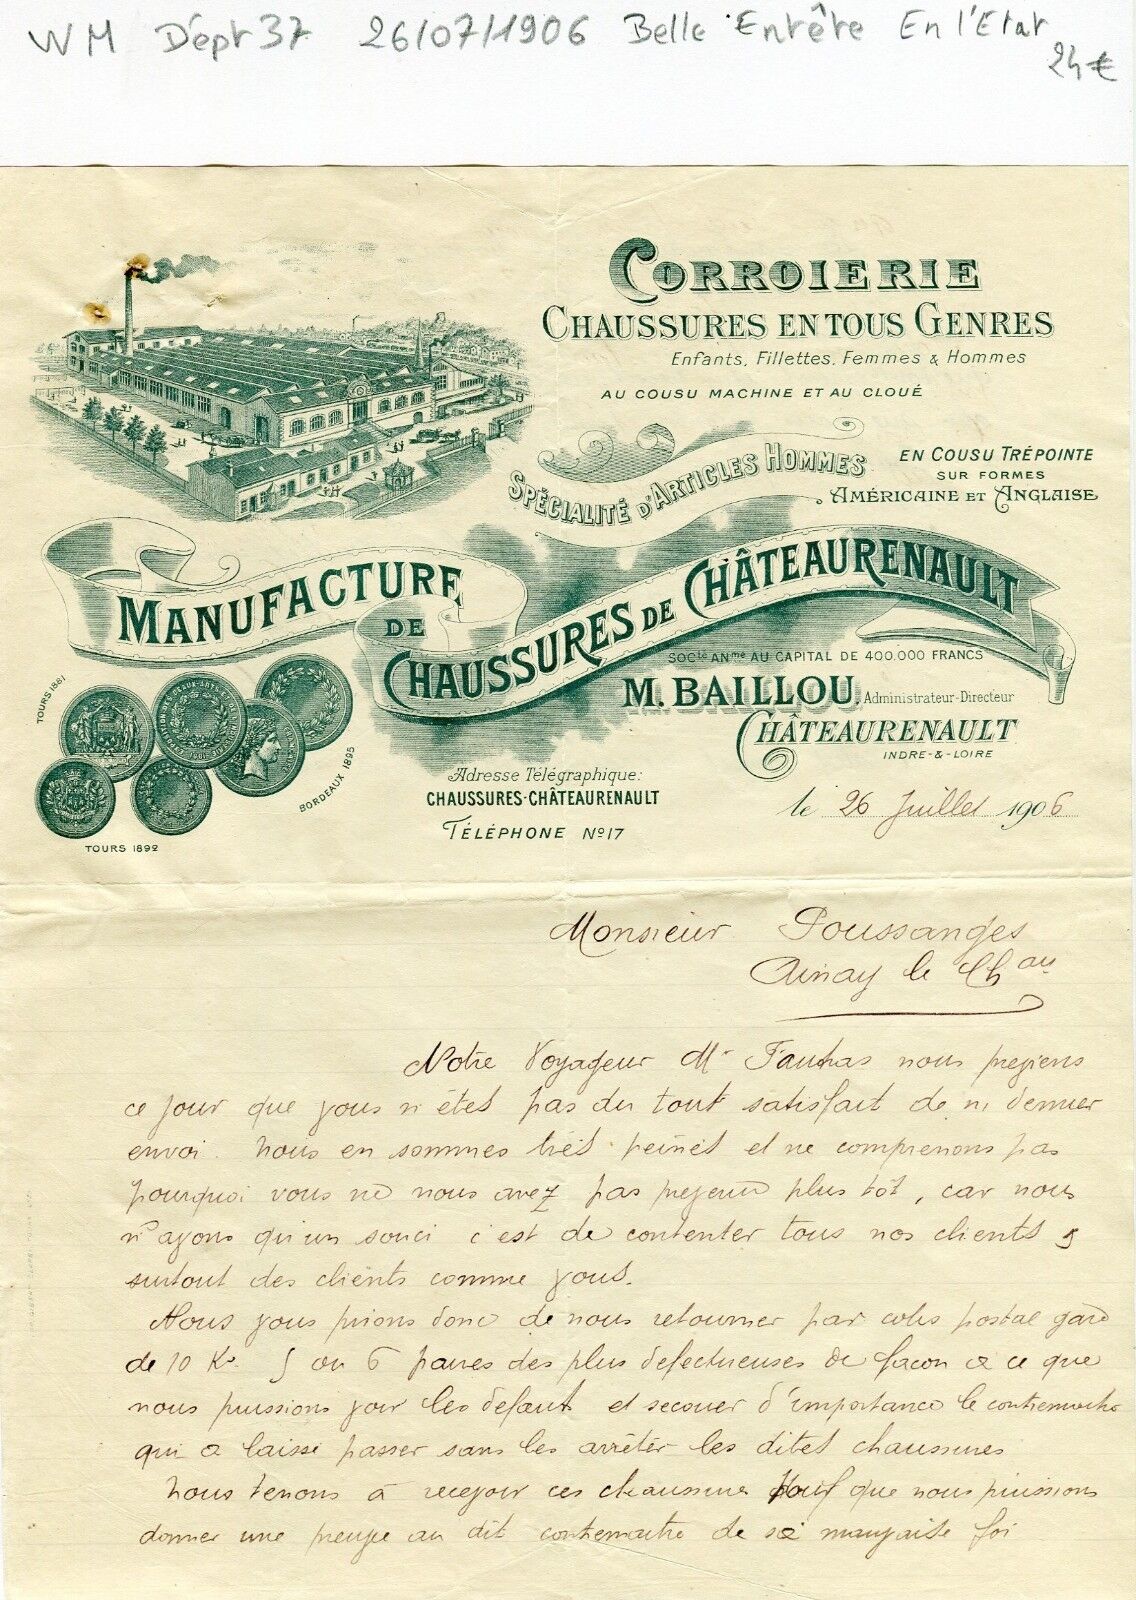 WM Dépt 37 26/07/1906 Belle Entête En l'Etat
24€
CORROIERIE
CHAUSSURES EN TOUS GENRES
Enfants, Fillettes, Femmes & Hommes
AU COUSU MACHINE ET AU CLOUÉ
SPÉCIALITÉ D'ARTICLES HOMMES
EN COUSU TRÉPOINTE
SUR FORMES
AMÉRICAINE ET ANGLAISE
MANUFACTURE
DE
CHAUSSURES DE CHÂTEAURENAULT
SOCté ANme AU CAPITAL DE 400.000 FRANCS
M. BAILLOU, Administrateur-Directeur
CHÂTEAURENAULT
INDRE-&-LOIRE
TOURS 1881
BORDEAUX 1895
TOURS 1892
Adresse Télégraphique:
CHAUSSURES-CHÂTEAURENAULT
TÉLÉPHONE No 17
le 26 Juillet 1906
Monsieur Poussanges
Ainay le Chau
Notre Voyageur Mr nous previens
ce jour que vous n'étes pas du tout satisfait de n/ dernier
envoi. Nous en sommes trés peinés et ne comprenons pas
pourquoi vous ne nous avez pas prevenu plus tôt, car nous
n'avons qu'un souci c'est de contenter tous nos clients &
surtout des clients comme vous.
Nous vous prions donc de nous retourner par colis postal gare
de 10 Ks. 5 ou 6 paires des plus defectueuses de façon a ce que
nous puissions voir les defaut et secouer d'importance le contremaitre
qui a laissé passer sans les arrêter les dites chaussures
Nous tenons à recevoir ces chaussures pour que nous puissions
donner une preuve au dit contremaitre de sa mauvaise foi